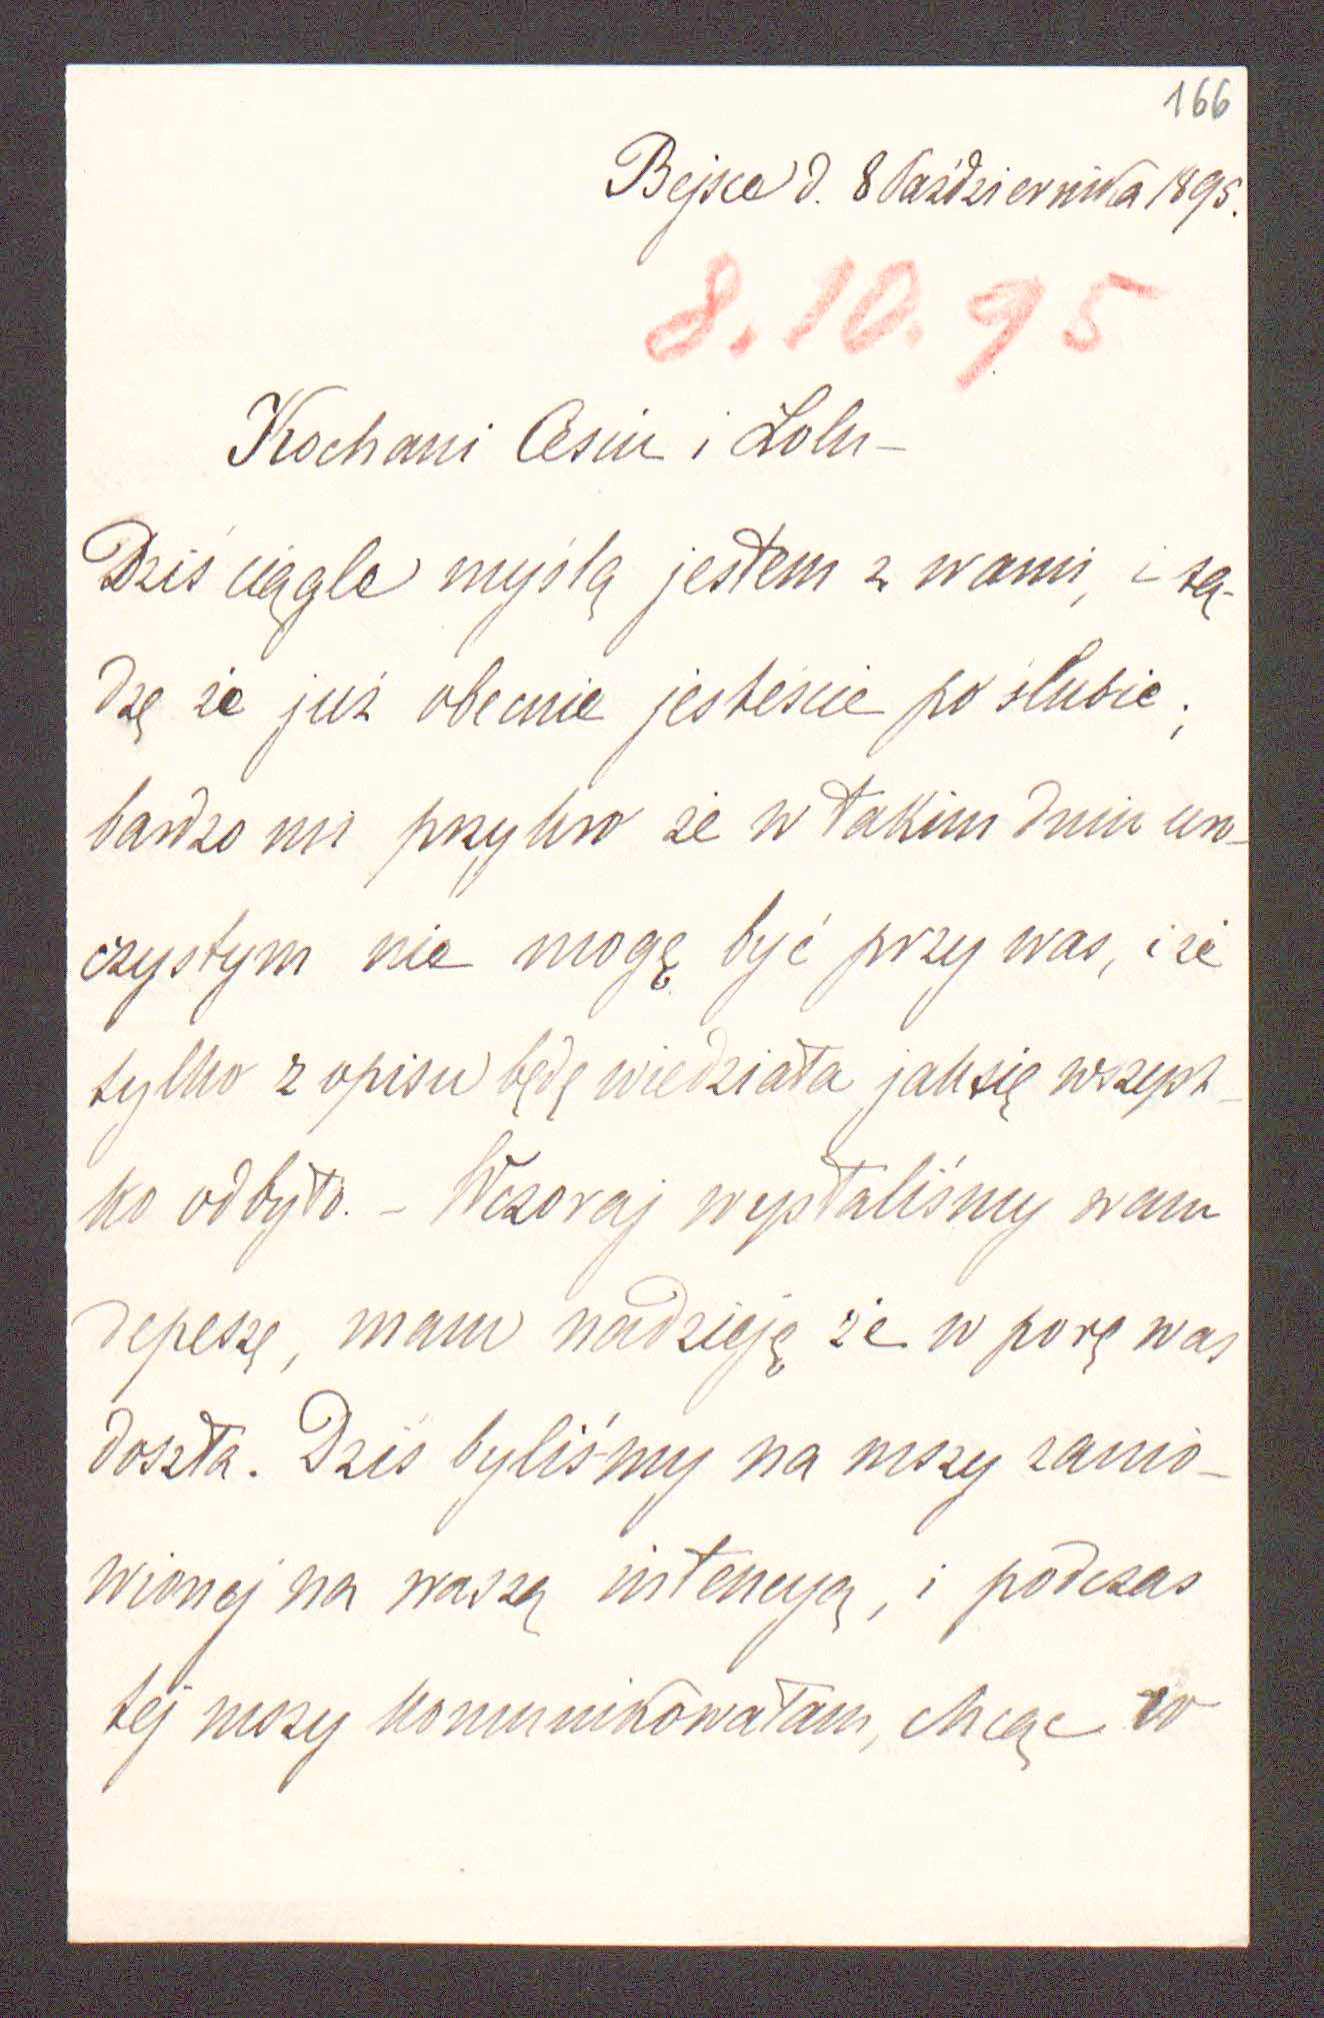 166
Bejsce d. 8 Października 1895.
8.10.95
Kochani Cesiu i Lolu -
Dziś ciągle myślą jestem z wami, i są-
dzę że już obecnie jesteście po ślubie;
bardzo mi przykro że w takim dniu uro-
czystym nie mogę być przy was, i że
tylko z opisu będę wiedziała jak się wszyst-
ko odbyło. - Wczoraj wysłaliśmy wam
depeszę, mam nadzieję że w porę was
doszła. Dziś byliśmy na mszy zamó-
wionej na waszą intencyą, i podczas
tej mszy komunikowałam, chcąc w